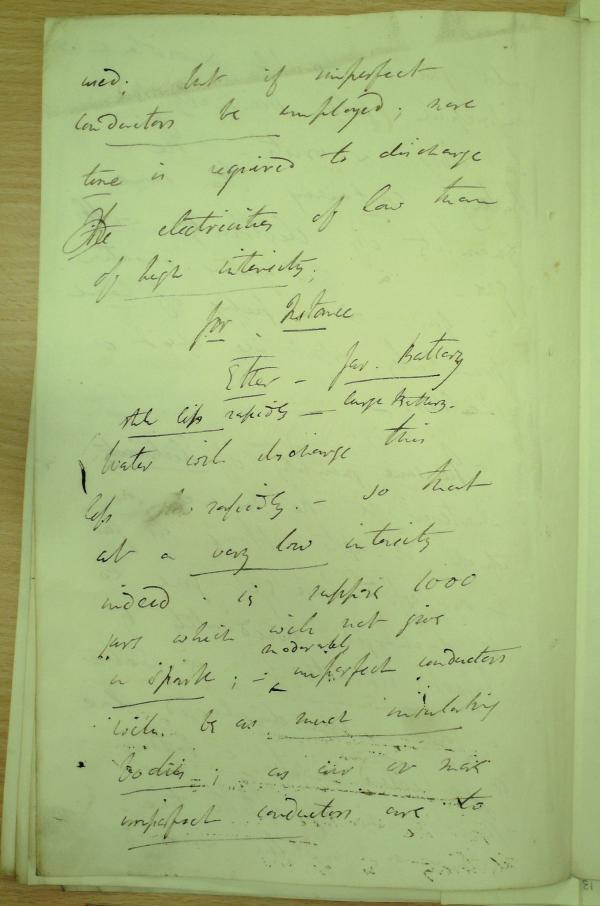 used; but if imperfect
conductors be employed; more
time is required to discharge
the electricities of low than
of high intensity;
for Instance
Ether - jar. Battery
still less rapidly - large Battery.
Water will discharge this
less rapidly. - so that
at a very low intensity
indeed. ie suppose 1000
jars which will not give
moderately
a spark; - imperfect conductors
will be as much insulating
bodies; as air or more
imperfect conductors are to